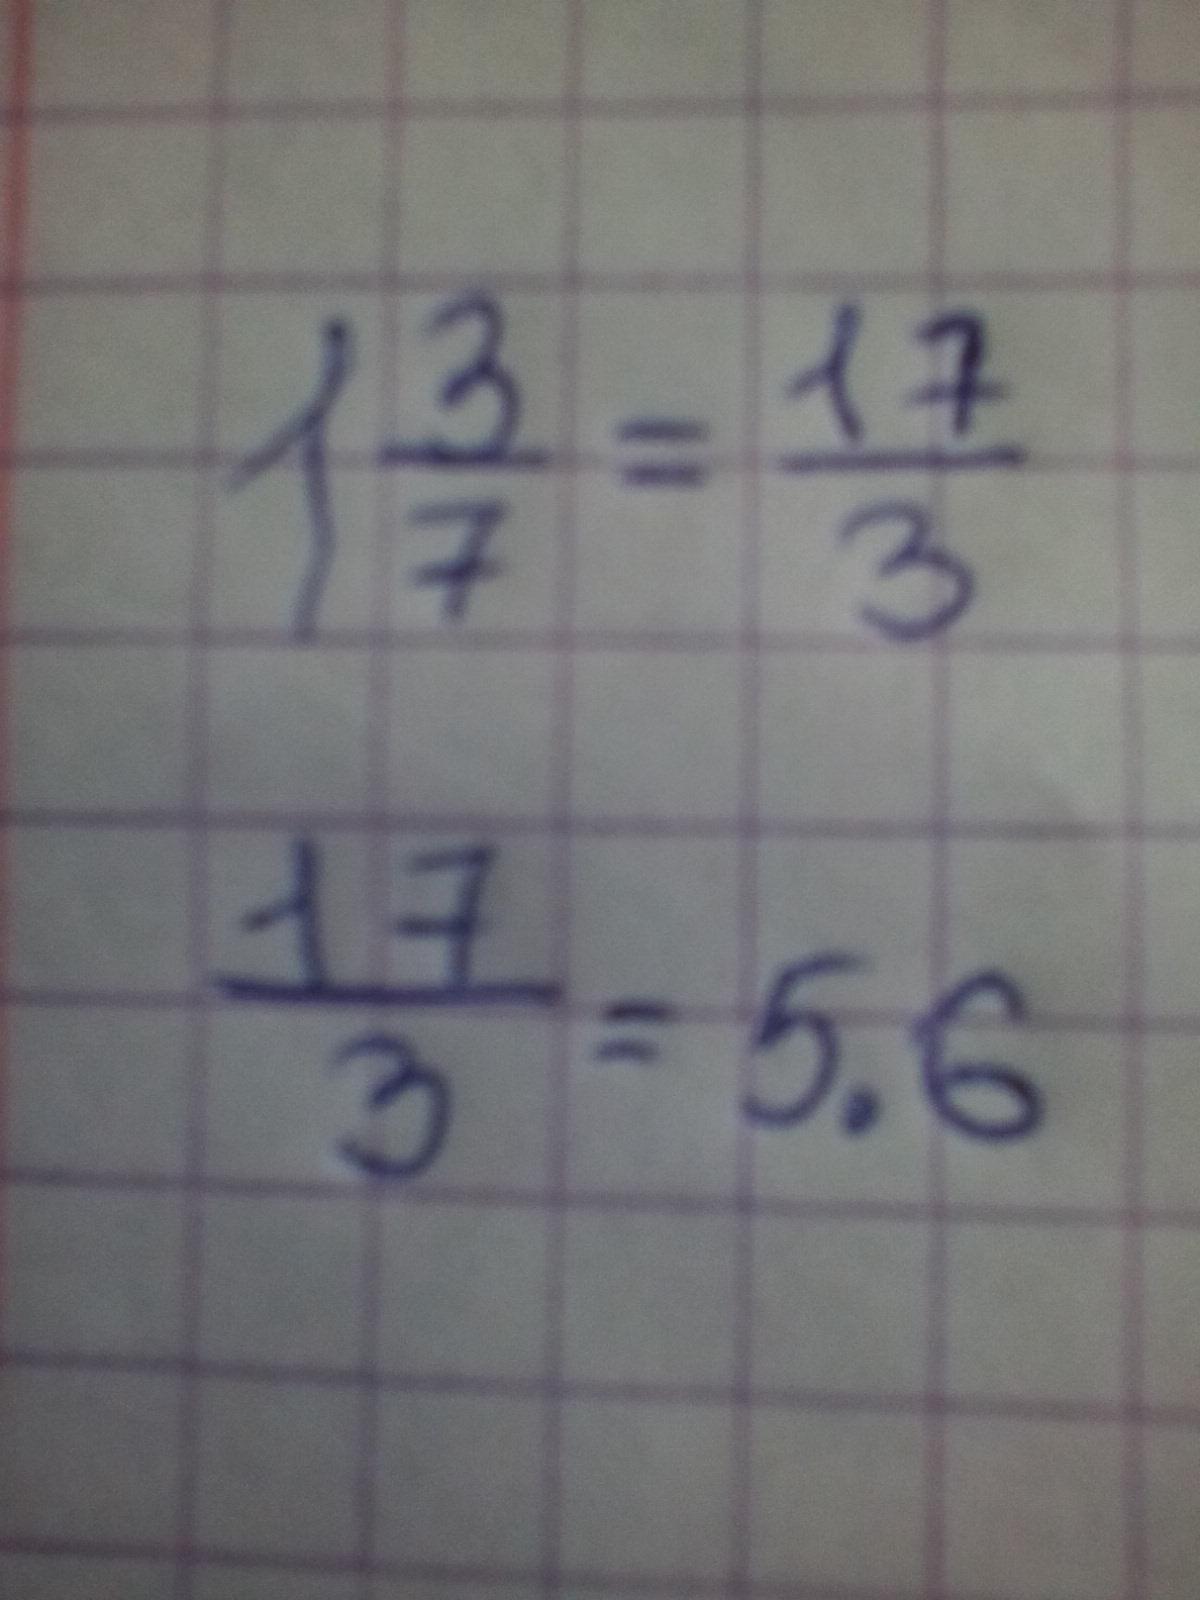 1 3/7 = 17/3
17/3 = 5.6